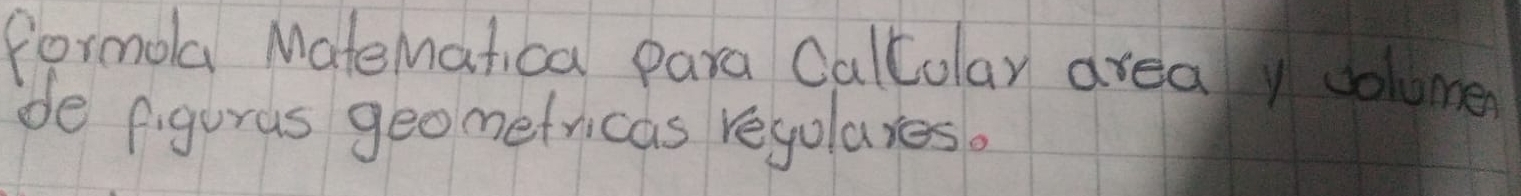 formola Matematica para Calcular area y volumen
de figuras geometricas regulares.